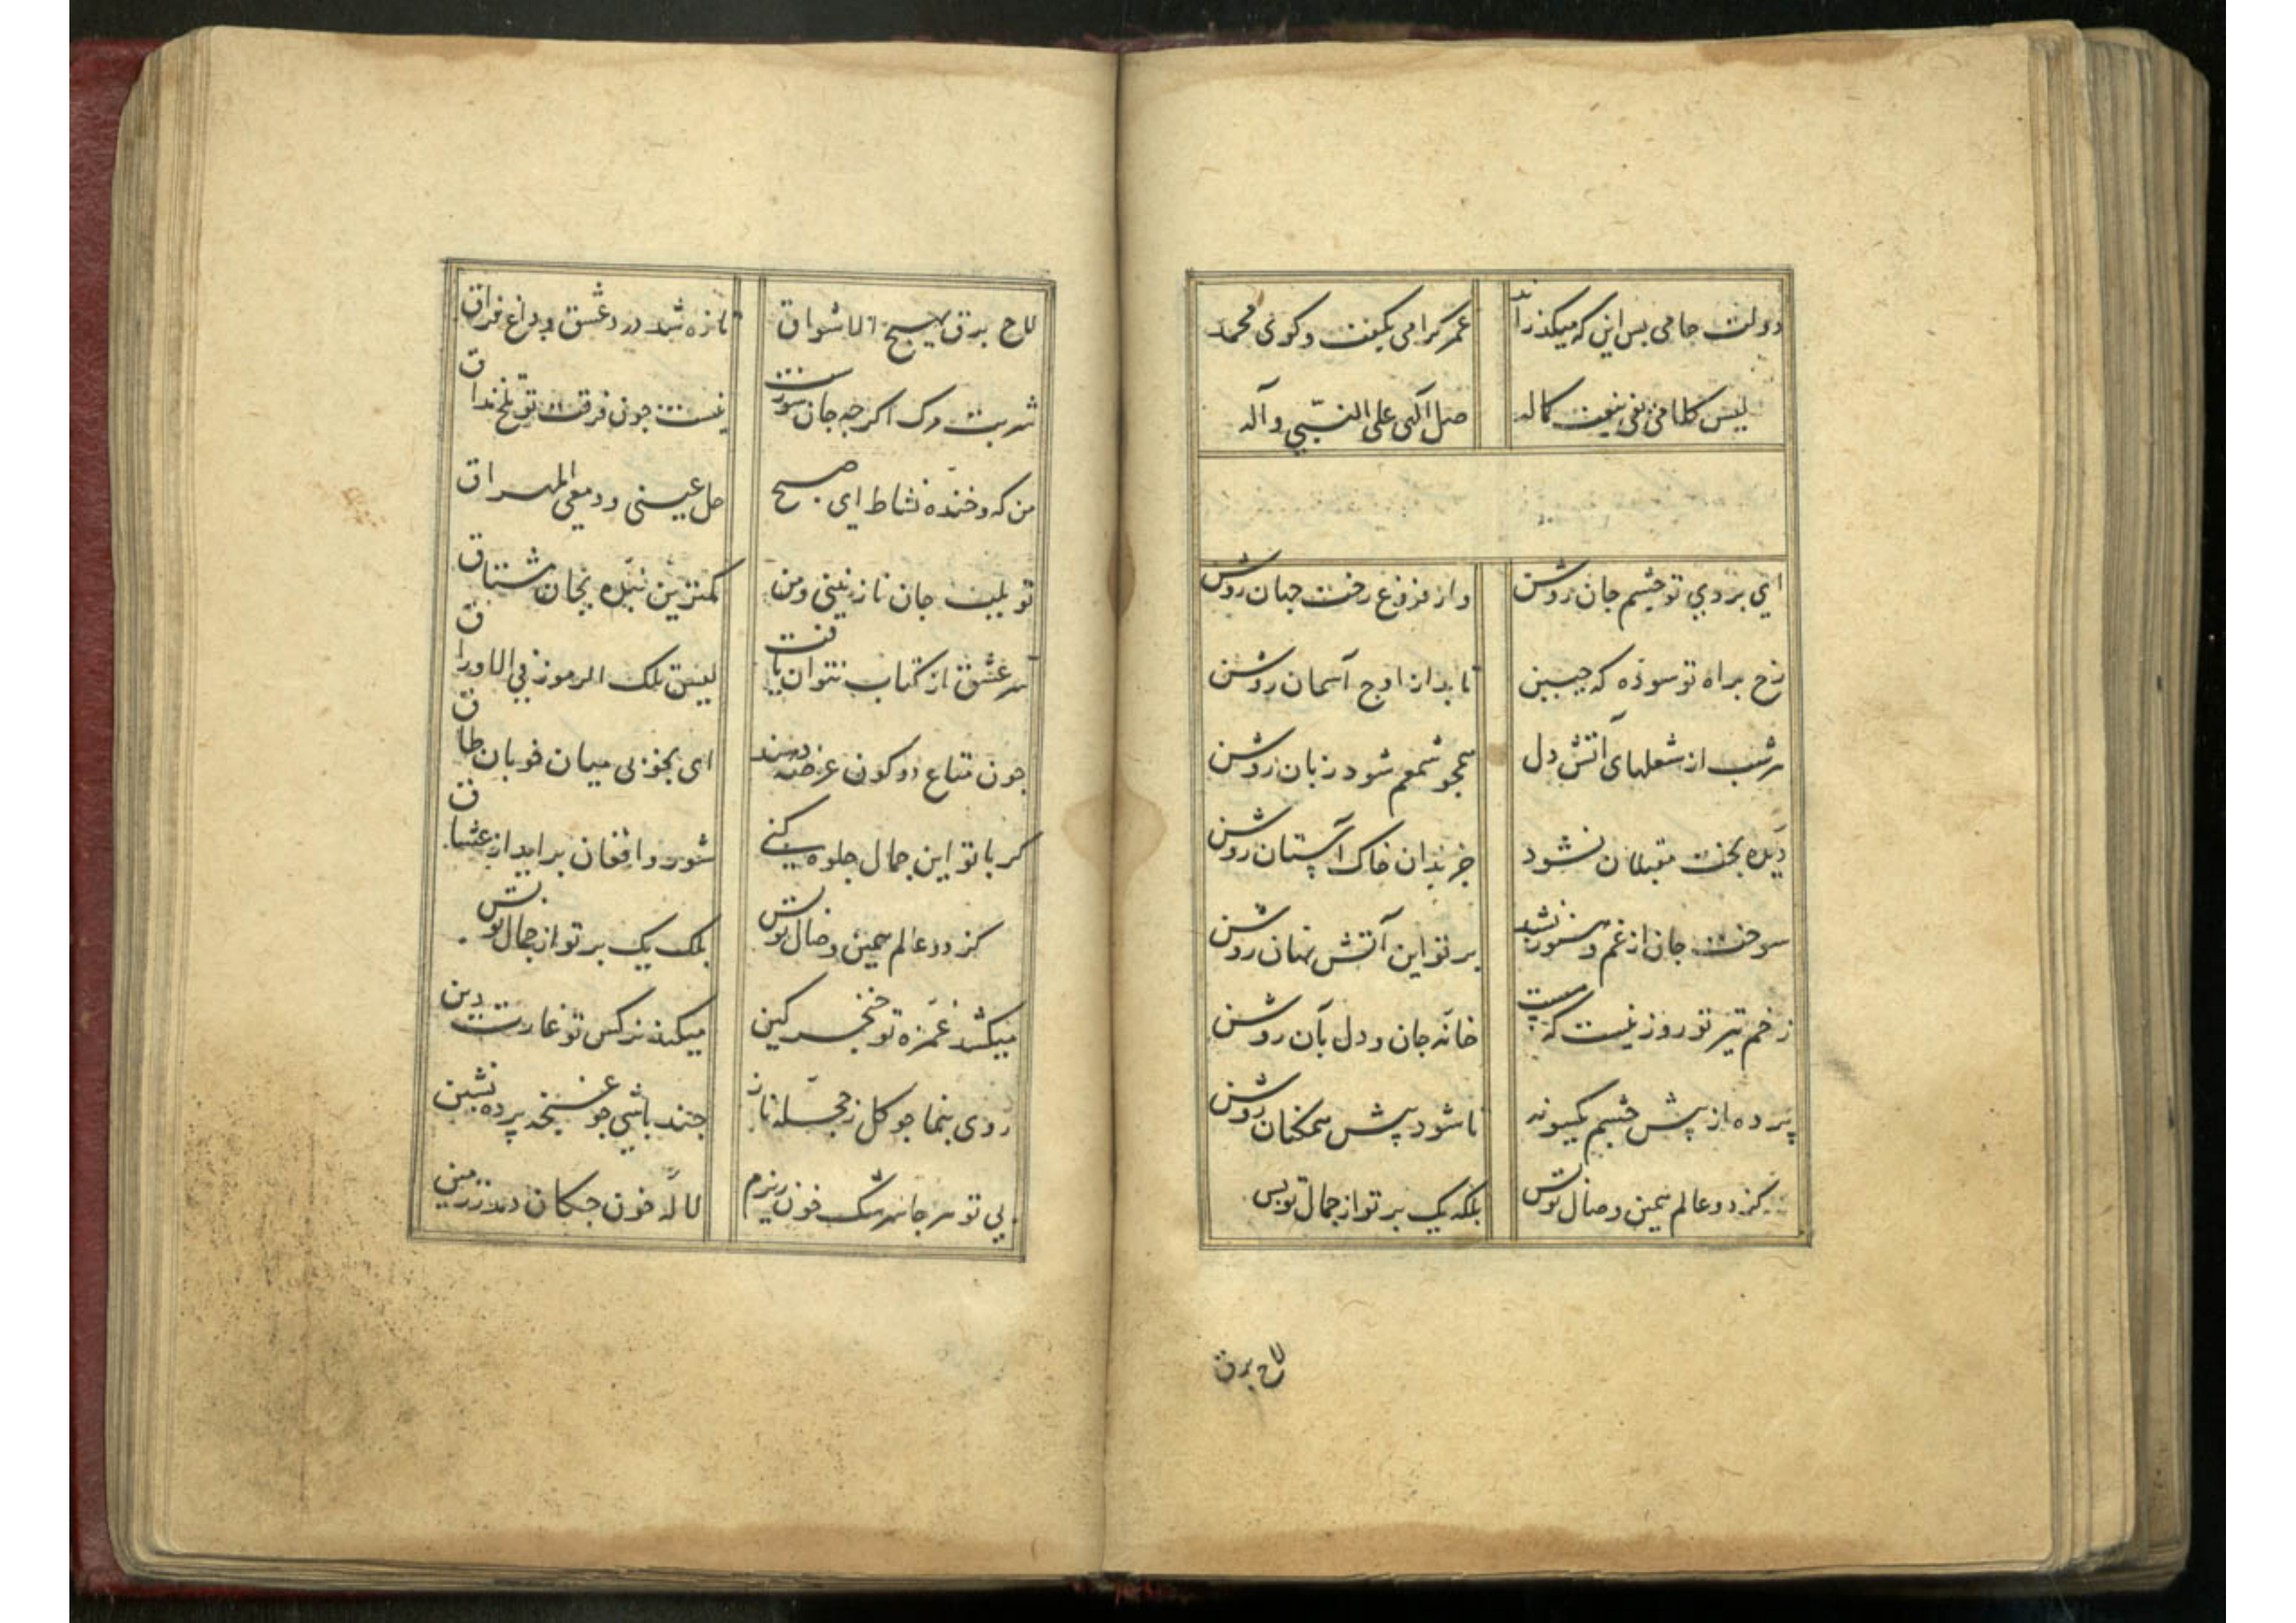 دولت جامی بس این که میکذراند عمر کرامی بکفت وکوی محمد
لیس کلامی یفی بنعت کماله صل الهی علی النبی وآله
ای بروی تو چشم جان روشن واز فروغ رخت جهان روشن
رخ براه تو سوده که جبین تابد از اوج آسمان روشن
هرشب از شعلهای آتش دل همچو شمعم شود زبان روشن
دیده بخت مقبلان نشود جز بدان خاک آستان روشن
سوخت جان از غم وهنوز نشد برتو این آتش نهان روشن
زخم تیر تو روز نیست که هست خانه جان و دل بآن روشن
پرده از پیش چشم یکسونه تا شود پیش همکنان روشن
کز دو عالم همین وصال تو بس بلکه یک برتو از جمال تو بس
لاح برق
لاح برق یهیج الاشواق تازه شد درد عشق و داغ فراق
شربت مرک اکرچه جان سوزست نیست جون فرقت تو تلخ مذاق
من که وخنده نشاط ای صبح حل عینی ودمعی المهراق
تو بلب جان نازنینی ومن کمترین بنده بجان مشتاق
سر عشق از کتاب نتوان یافت لیس تلک الرموز فی الاوراق
جون متاع دو کون عرضه دهند ای بخوبی میان خوبان طاق
کر بانو این جمال جلوه کنی شور وافغان براید از عشاق
کز دو عالم همین وصال تو بس بلک یک برتو از جمال تو بس
میکشد غمزه تو خنجر کین میکند نرکس تو غارت دین
روی بنما جو کل ز حجله ناز جند باشی جو غنجه پرده نشین
بی تو هر جا سرشک خون ریزم لاله خون جکان دمد ز زمین